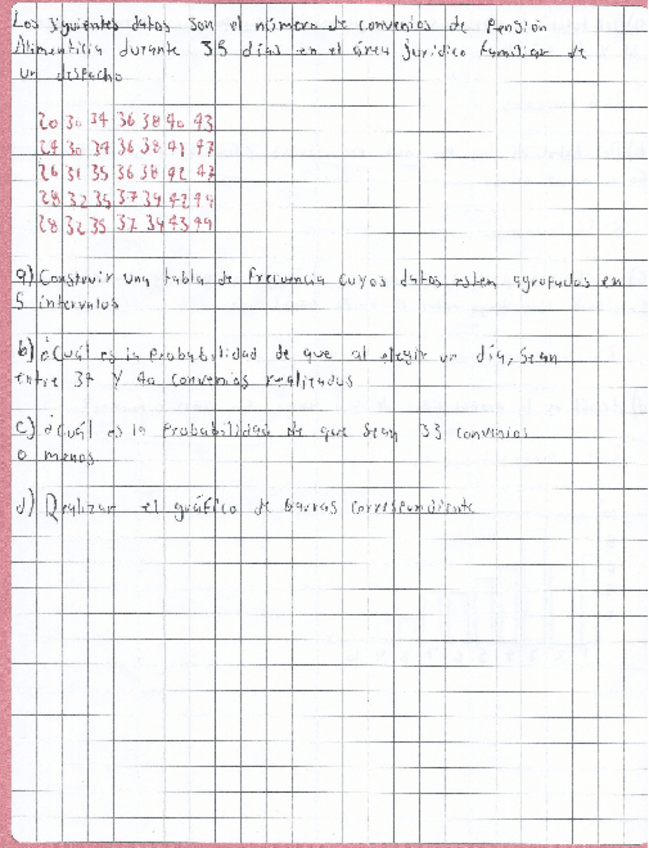 Los siguientes datos son el número de convenios de Pensión
Alimenticia durante 35 días en el área jurídico familiar de
un despacho
20 30 34 36 38 40 43
24 30 34 36 38 41 43
26 31 35 36 38 42 43
28 32 35 37 39 42 44
28 32 35 37 39 43 44
a) Construir una tabla de frecuencia cuyos datos esten agrupados en
5 intervalos
b) ¿Cuál es la probabilidad de que al elegir un día, sean
entre 34 y 40 convenios realizados
c) ¿Cuál es la probabilidad de que sean 33 convenios
o menos
d) Realizar el gráfico de barras correspondiente